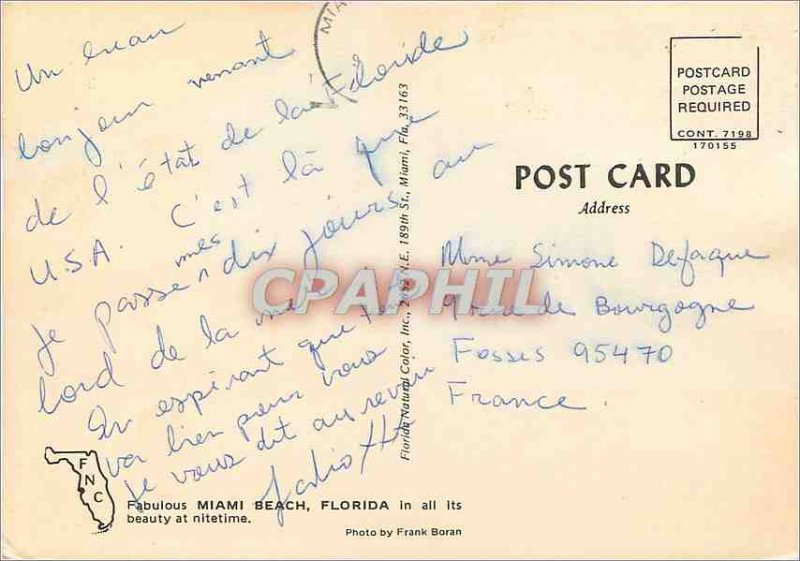 Un
bonjour venant
de l'état de la Floride
U.S.A. C'est là que
je passe mes dix jours au
bord de la mer
En espérant que tout
va bien pour vous
je vous dit au revoir
MIA
POSTCARD
POSTAGE
REQUIRED
CONT. 7198
170155
POST CARD
Address
Mme Simone Defaque
rue de Bourgogne
Fosses 95470
France.
CPAPHIL
Florida Natural Color, Inc., N.E. 189th St., Miami, Fla. 33163
FNC
Fabulous MIAMI BEACH, FLORIDA in all its
beauty at nitetime.
Photo by Frank Boran